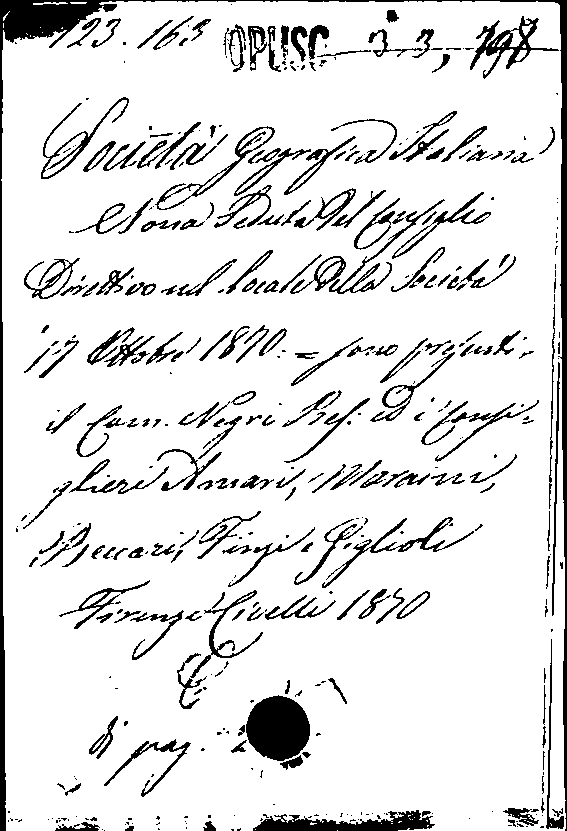 123.163 OPUSC 3.3, 798
Società Geografica Italiana
Nona Seduta del Consiglio
Direttivo nel locale della Società
17 Ottobre 1870. = sono presenti,
il Com. Negri Pres. ed i Consi=
glieri Amari, Maraini,
Beccari, Finzi e Giglioli
Firenze Civelli 1870
di pag. 2